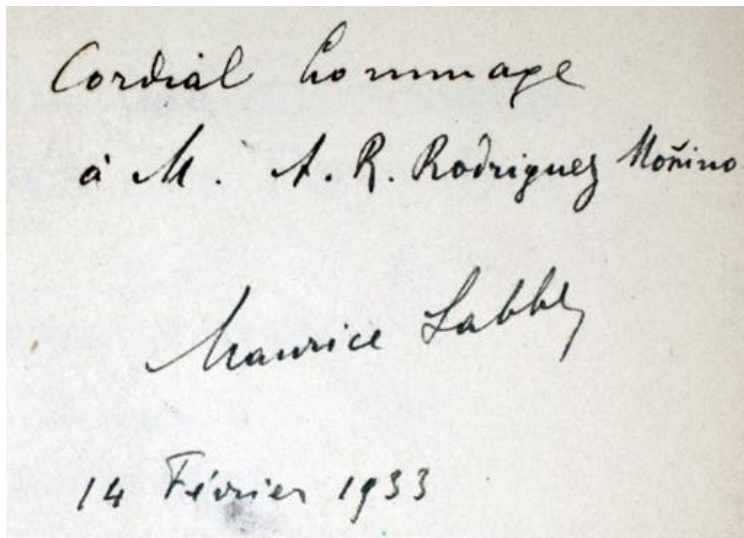 Cordial hommage
à M. A. R. Rodriguez Moñino
Maurice Labbé
14 Février 1933